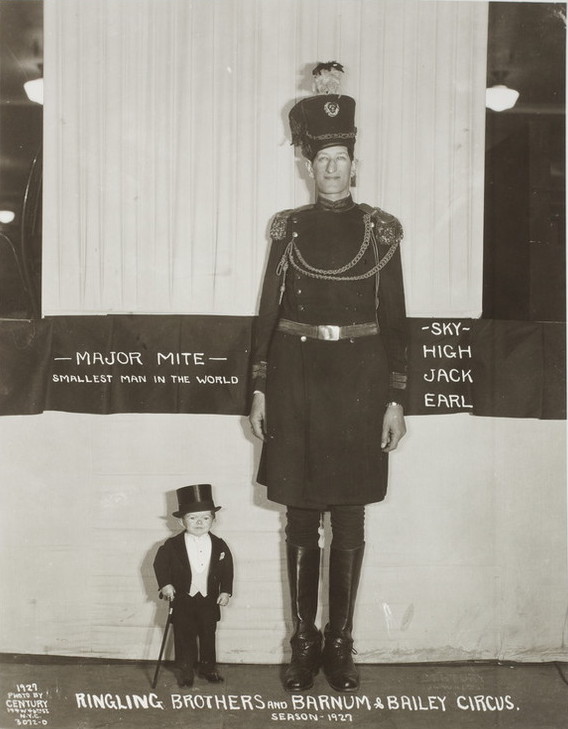 —MAJOR MITE—
SMALLEST MAN IN THE WORLD
-SKY-
HIGH
JACK
EARL
1927
PHOTO BY
CENTURY
N.Y.C.
3072-O
RINGLING BROTHERS AND BARNUM & BAILEY CIRCUS.
SEASON-1927